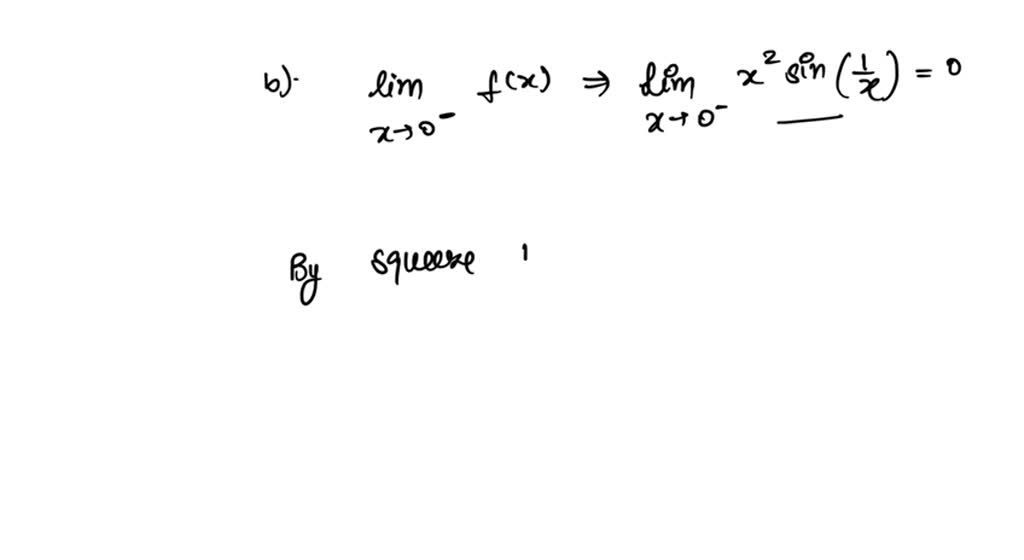 b)· lim x→0⁻ f(x) ⇒ lim x→0⁻ x² sin(1/x) = 0
By squeeze